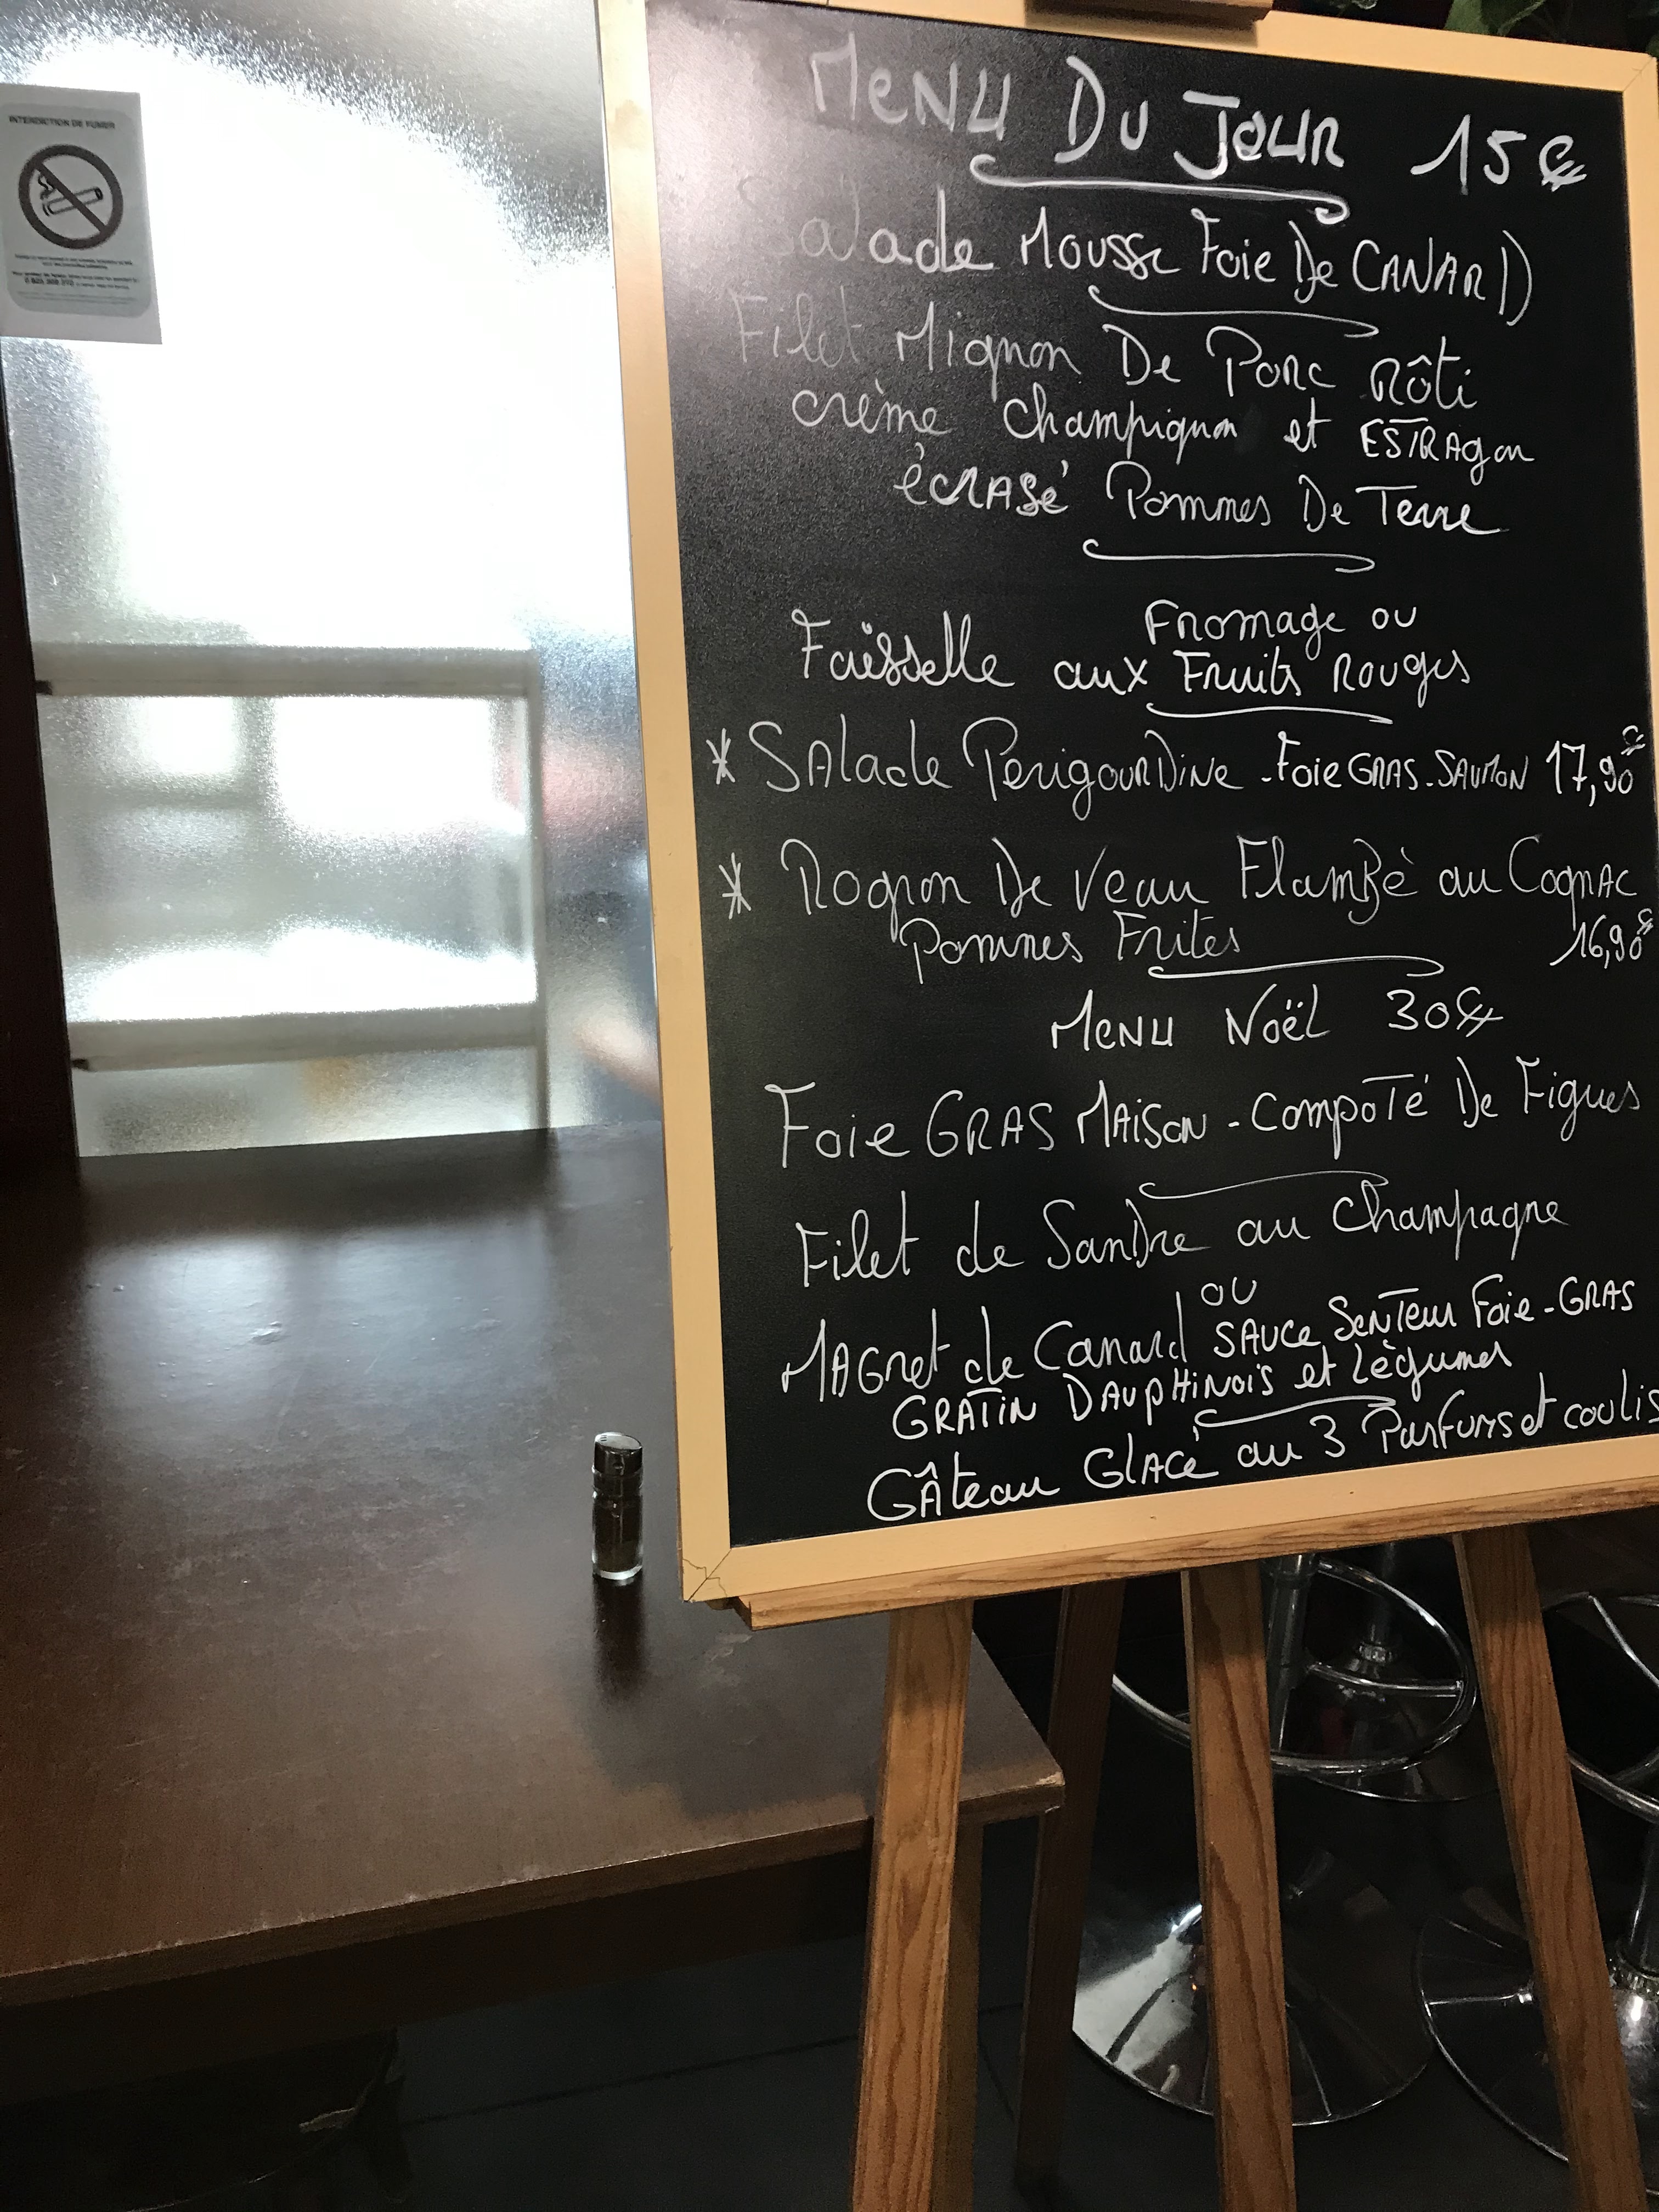 INTERDICTION DE FUMER
Menu Du Jour 15€
Salade Mousse Foie De Canard
Filet Mignon De Porc Rôti
crème champignon et ESTRAgon
écrasé Pommes De Terre
Fromage ou
Faisselle aux Fruits Rouges
* Salade Perigourdine - Foie GRAS - SAUMON 17,90€
* Rognon De Veau Flambé au Cognac
Pommes Frites 16,90€
Menu Noël 30€
Foie GRAS MAISON - Compoté De Figues
Filet de Sandre au Champagne
ou
Magret de Canard SAUCE Senteur Foie-GRAS
GRATIN DAUPHINOIS et Lègumes
Gâteau Glacé au 3 Parfums et coulis